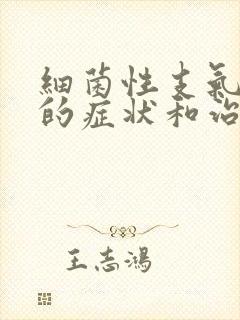 細菌性支氣
的症状和治
王志鴻